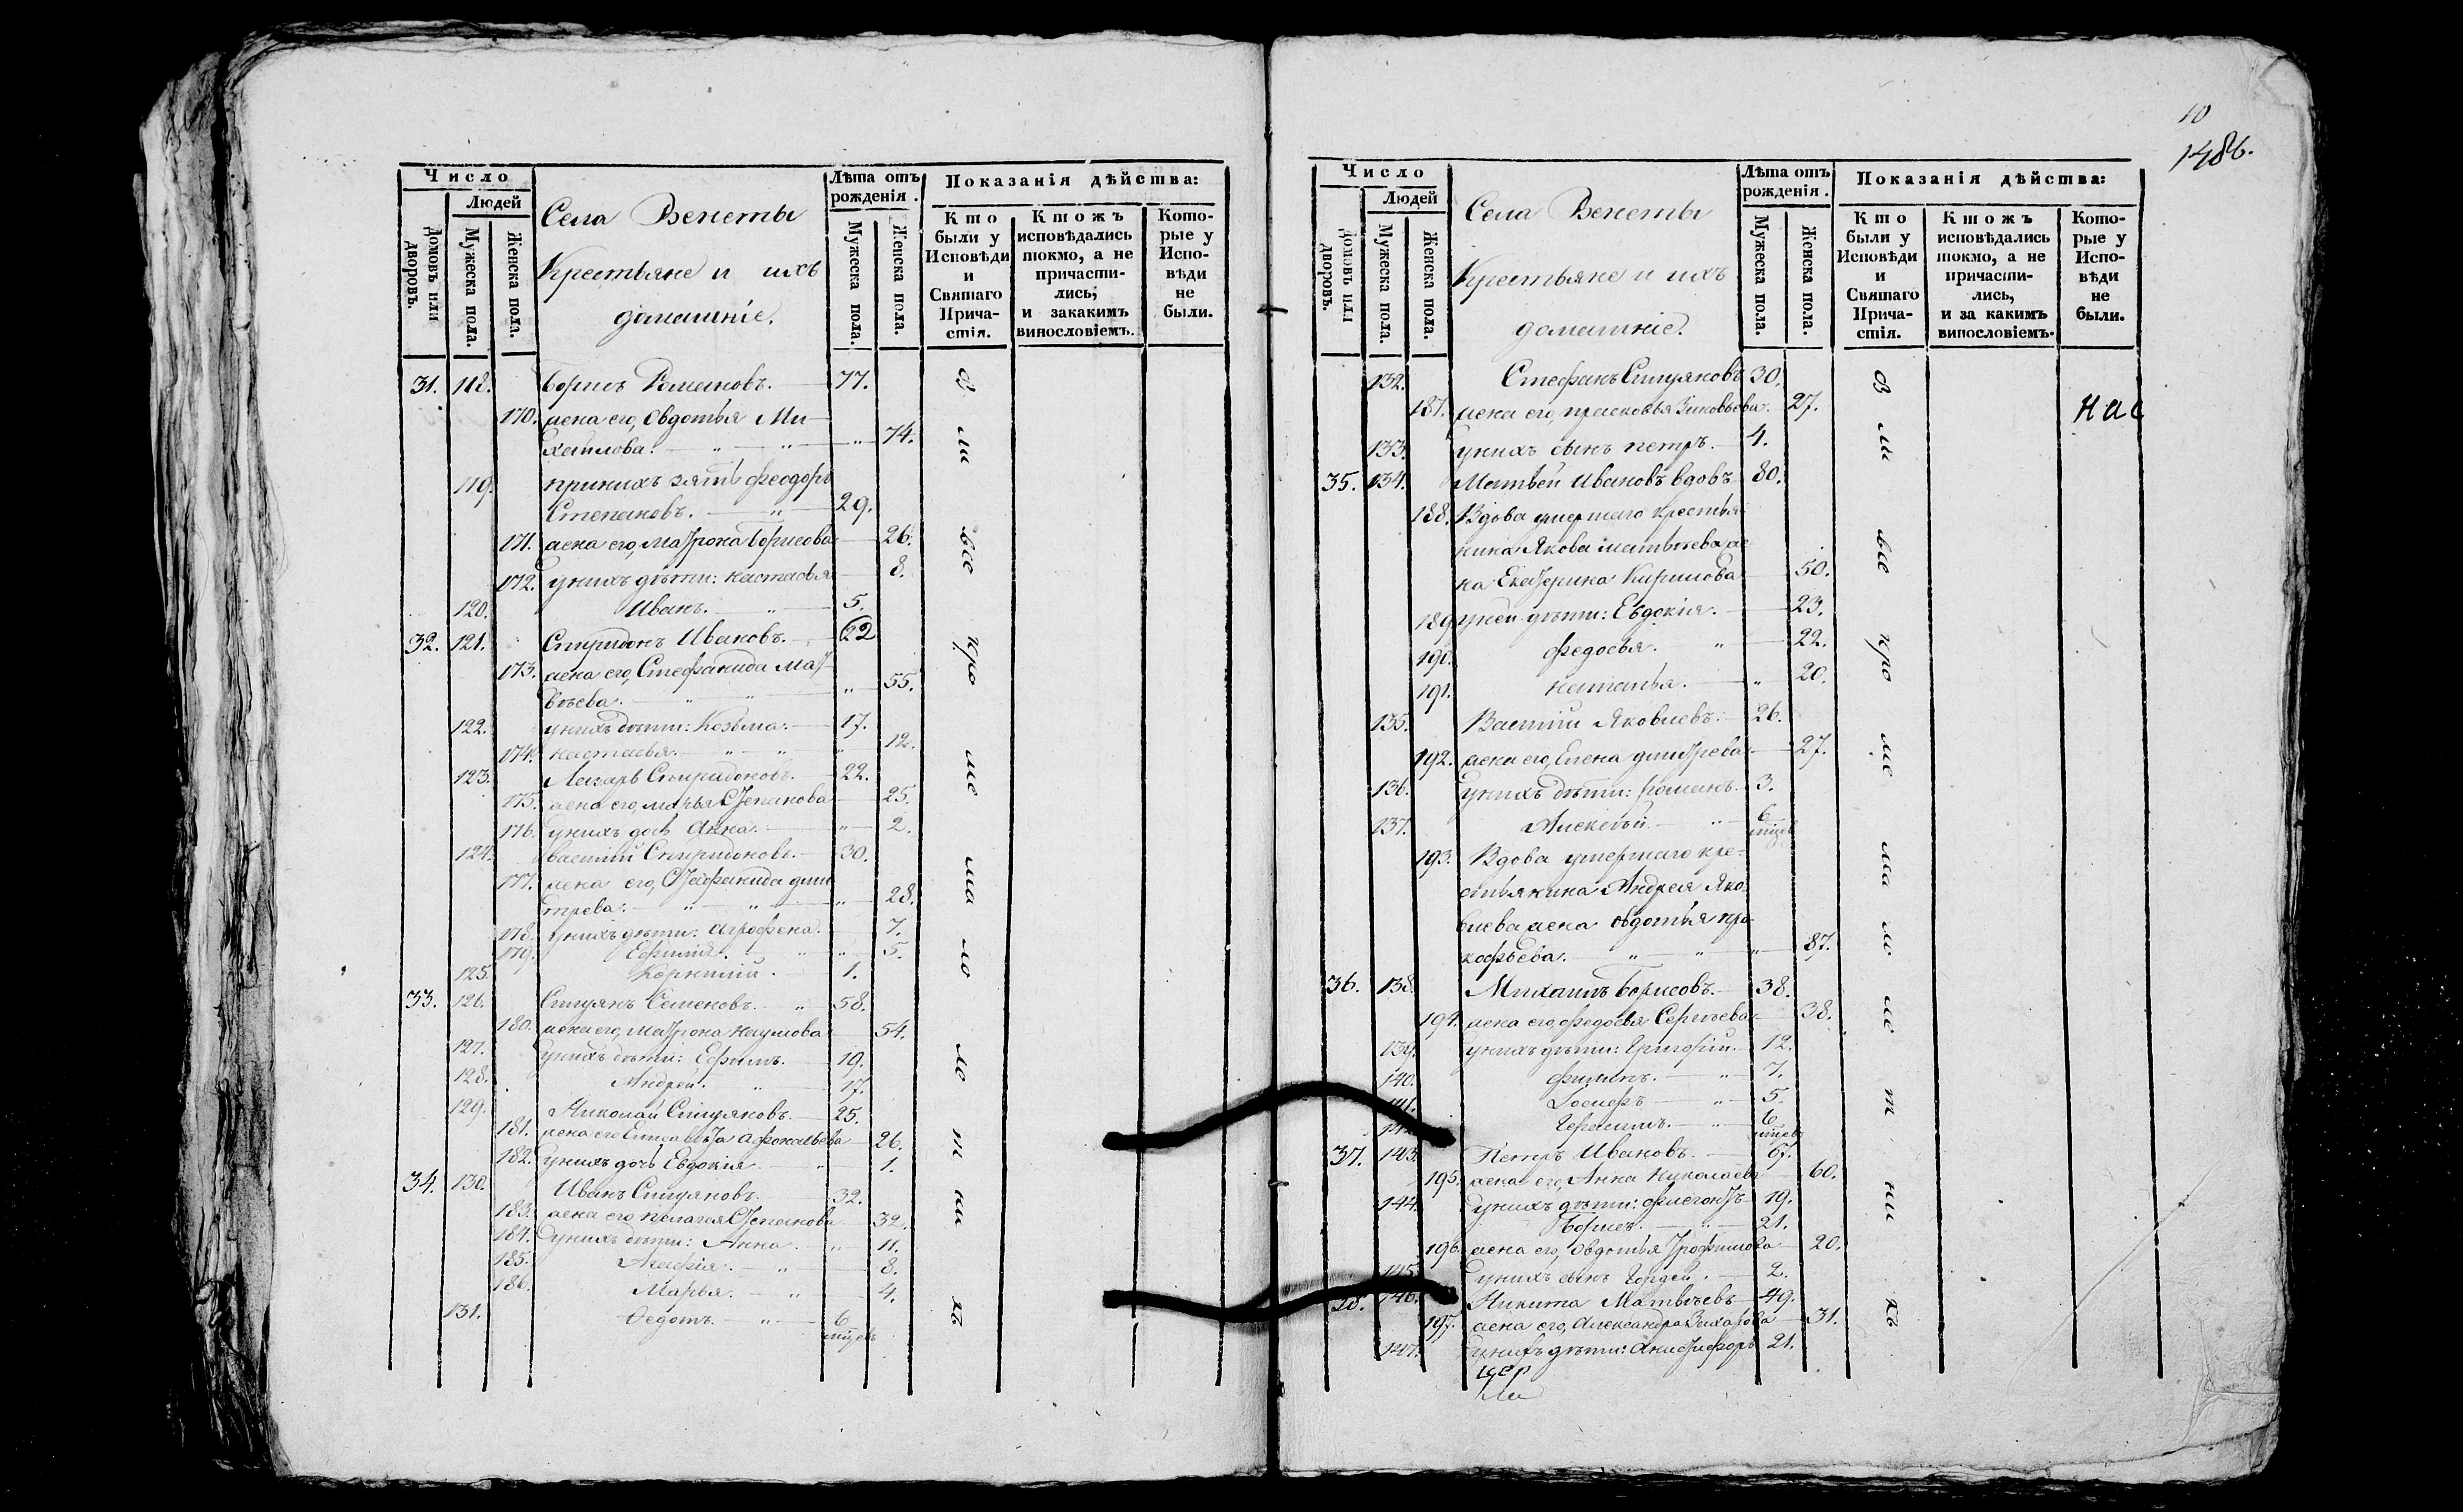 Число
Людей
Домовъ или дворовъ.
Мужеска пола.
Женска пола.
Села Венеты
Крестьяне и ихъ
домашніе.
Лѣта отъ рожденія.
Мужеска пола.
Женска пола.
Показанія дѣйства:
Кто были у Исповѣди и Святаго Прича-стія.
Ктожъ исповѣдались токмо, а не причасти-лись, и закакимъ винословіемъ.
Кото-рые у Испо-вѣди не были.
31. 118. Борисъ Романовъ. 77.
170. жена его, Овдотья Ми-
хайлова. 74.
119. при нихъ зять Феодоръ
Степановъ. 29.
171. жена его, Матрона Борисова 26.
172. у нихъ дѣти: Настасья 8.
120. Иванъ. 5.
32. 121. Спиридонъ Ивановъ. 62
173. жена его, Стефанида Мат-
вѣева. 55.
122. у нихъ дѣти: Козьма. 17.
174. Настасья. 12.
123. Лазарь Спиридоновъ. 22.
175. жена его, Марья Степанова 25.
176. у нихъ дочь Анна. 2.
124. Василій Спиридоновъ. 30.
177. жена его, Стефанида Дми
трева. 28.
178. у нихъ дѣти: Агрофена. 7.
179. Ефимія. 5.
125. Корнилій. 1.
33. 126. Стуянъ Семеновъ. 58.
180. жена его, Матрона Наумова 54.
127. у нихъ дѣти: Ефимъ. 19.
128. Андрей. 17.
129. Николай Стуяновъ. 25.
181. жена его Елисавета Афонасьева 26.
182. у нихъ дочь Евдокія 1.
34. 130. Иванъ Стуяновъ. 32.
183. жена его Пелагея Степанова 32.
184. у нихъ дѣти: Анна. 11.
185. Агафія. 8.
186. Марья. 4.
131. Федотъ. 6
мцев
10
1486.
Число
Людей
Домовъ или дворовъ.
Мужеска пола.
Женска пола.
Села Венеты
Крестьяне и ихъ
домашніе.
Лѣта отъ рожденія.
Мужеска пола.
Женска пола.
Показанія дѣйства:
Кто были у Исповѣди и Святаго Прича-стія.
Ктожъ исповѣдались токмо, а не причасти-лись, и за какимъ винословіемъ.
Кото-рые у Испо-вѣди не были.
132. Стефанъ Стуяновъ 30.
187. жена его, Прасковья Зиновьева. 27.
133. у нихъ сынъ Петръ. 4.
35. 134. Матвей Ивановъ вдовъ 80.
188. Вдова умершаго крестья
нина Якова Матвѣева же
на Екатерина Кирилова 50.
189. у ней дѣти: Евдокія. 23.
190. Федосья. 22.
191. Наталья. 20.
135. Василій Яковлевъ. 26.
192. жена его, Елена Дмитрева 27.
136. у нихъ дѣти: Романъ. 3.
137. Алексѣй. 6
мцев
193. Вдова умершаго кре-
стьянина Андрея Яко
влева жена Овдотья Про
кофьева. 87.
36. 138. Михаилъ Борисовъ. 38.
194. жена его, Федосья Сергѣева 38.
139. у нихъ дѣти: Григорій. 12.
140. Филипъ. 7.
141. Іосифъ 5.
142. Герасимъ. 6
мцев
37. 143. Петръ Ивановъ. 67.
195. жена его, Анна Николаева 60.
144. у нихъ дѣти: Флегонтъ 19.
Борисъ. 21.
196. жена его, Овдотья Трофимова 20.
145. у нихъ сынъ Гордей. 2.
38. 146. Никита Матвѣевъ 49.
197. жена его, Александра Захарова 31.
147. у нихъ дѣти: Анисифоръ 21.